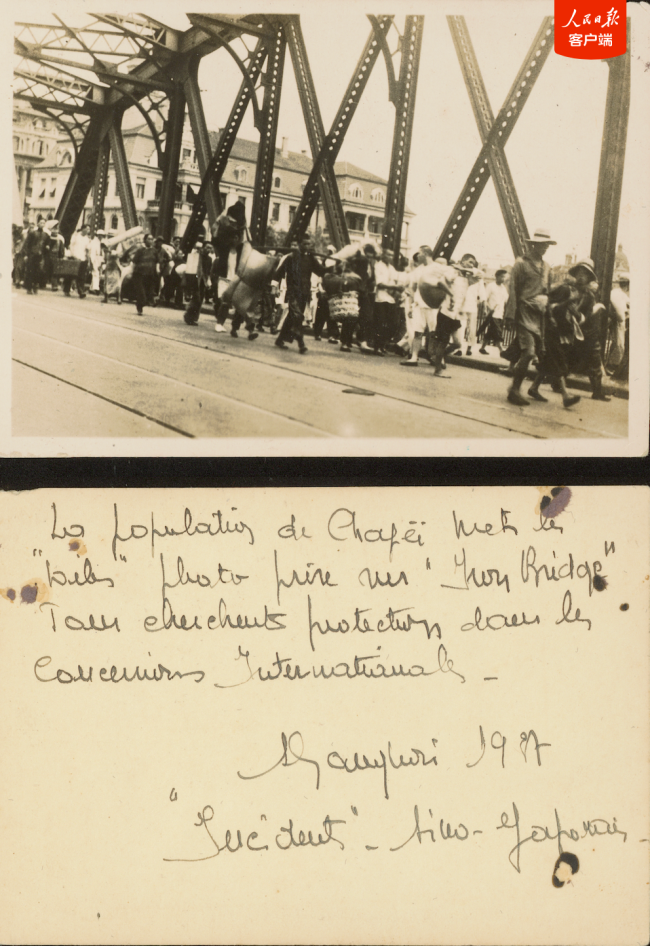 人民日报
客户端
La population de Chapeï mets les
"voiles" photo prise sur "Iron Bridge"
Tous cherchent protection dans les
Concessions Internationales -
Shanghaï 1937
"Incident" - Sino-Japonais -